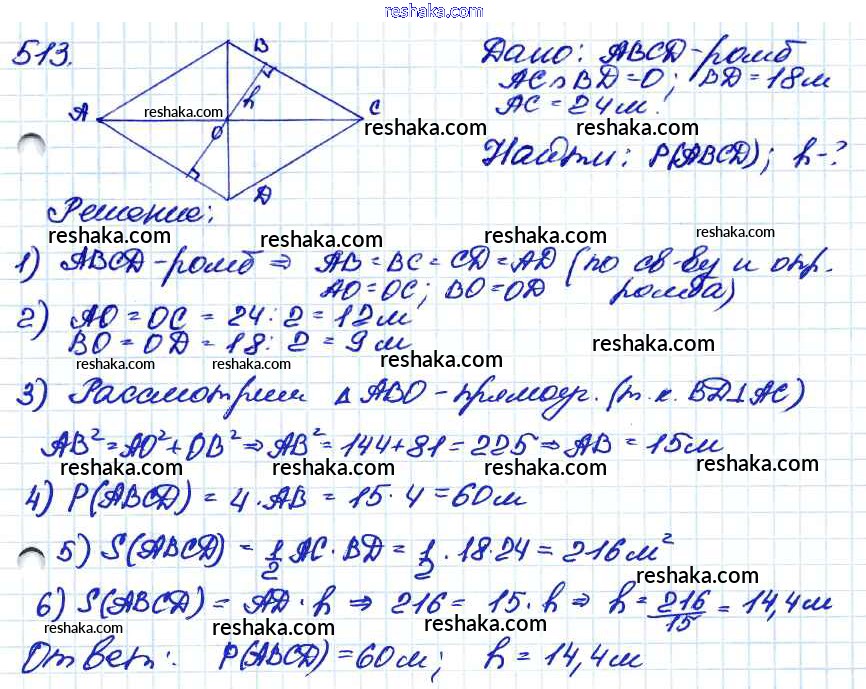 reshaka.com
513.
B
Дано: ABCD-ромб
AC∩BD=O; BD=18м
A
reshaka.com
h
C
reshaka.com
AC=24м.
reshaka.com
O
Найти: P(ABCD); h-?
D
Решение:
reshaka.com
reshaka.com
reshaka.com
1) ABCD-ромб ⇒ AB=BC=CD=AD (по св-ву и опр.
AO=OC; BO=OD ромба)
2) AO=OC=24:2=12м
BO=OD=18:2=9м
reshaka.com
reshaka.com
reshaka.com
3) Рассмотрим ΔABO-прямоуг. (т.к. BD⊥AC)
AB²=AO²+OB²⇒AB²=144+81=225⇒AB=15м
reshaka.com
reshaka.com
reshaka.com
4) P(ABCD)=4·AB=15·4=60м
5) S(ABCD)=1/2 AC·BD=1/2·18·24=216м²
reshaka.com
6) S(ABCD)=AD·h ⇒ 216=15·h ⇒ h=216/15=14,4м
reshaka.com
reshaka.com
reshaka.com
Ответ: P(ABCD)=60м; h=14,4м